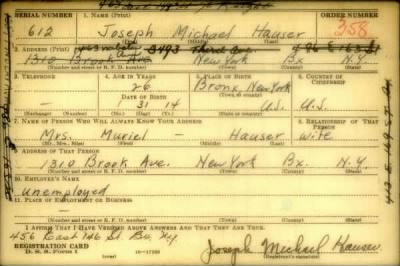 SERIAL NUMBER 1. NAME (Print) ORDER NUMBER
612 Joseph Michael Hauser 358
2. ADDRESS (Print)
1310 Brook Ave New York Bx. N.Y.
(Number and street or R. F. D. number) (Town) (County) (State)
3. TELEPHONE 4. AGE IN YEARS 5. PLACE OF BIRTH 6. COUNTRY OF CITIZENSHIP
26 Bronx, New York
DATE OF BIRTH (Town, or county)
1 31 14 U.S. U.S.
(Exchange) (Number) (Mo.) (Day) (Yr.) (State or country)
7. NAME OF PERSON WHO WILL ALWAYS KNOW YOUR ADDRESS 8. RELATIONSHIP OF THAT PERSON
Mrs. Muriel - Hauser Wife
(Mr., Mrs., Miss) (First) (Middle) (Last)
9. ADDRESS OF THAT PERSON
1310 Brook Ave. New York Bx. N.Y.
(Number and street or R. F. D. number) (Town) (County) (State)
10. EMPLOYER'S NAME
Unemployed
11. PLACE OF EMPLOYMENT OR BUSINESS
-
(Number and street or R. F. D. number) (Town) (County) (State)
I AFFIRM THAT I HAVE VERIFIED ABOVE ANSWERS AND THAT THEY ARE TRUE.
456 East 146 St Bx. Ny
REGISTRATION CARD
D. S. S. Form 1 Joseph Michael Hauser